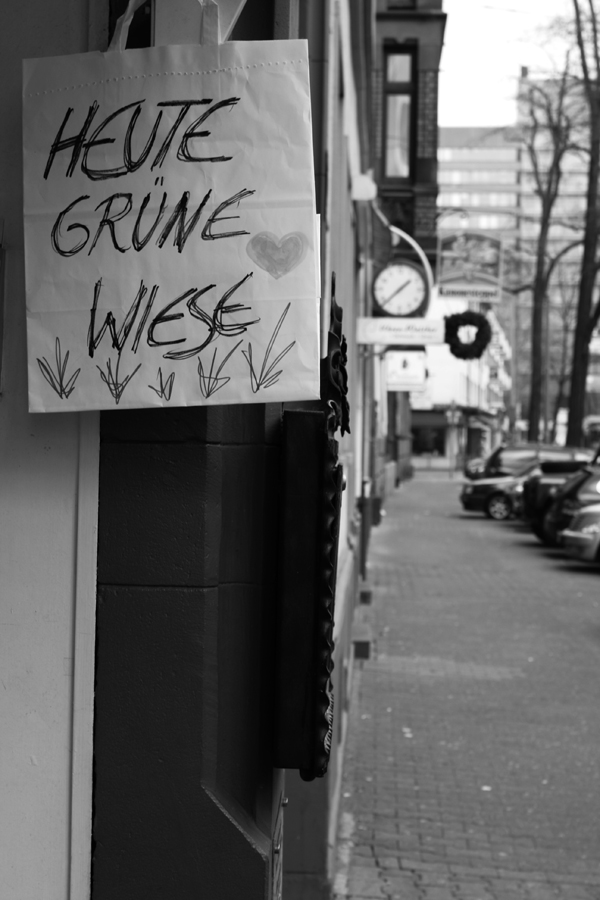 HEUTE
GRÜNE
WIESE